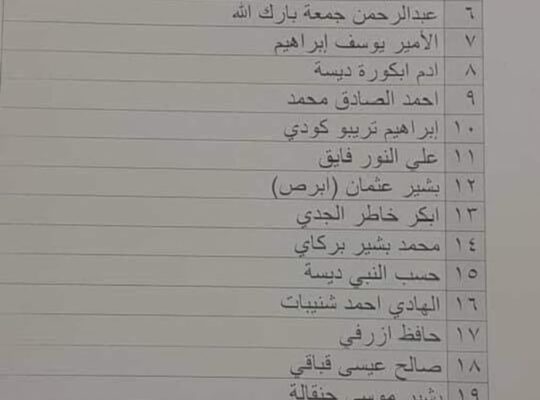 ٦ عبدالرحمن جمعة بارك الله
٧ الأمير يوسف إبراهيم
٨ ادم ابكورة ديسة
٩ احمد الصادق محمد
١٠ إبراهيم تريبو كودي
١١ علي النور فايق
١٢ بشير عثمان (ابرص)
١٣ ابكر خاطر الجدي
١٤ محمد بشير بركاي
١٥ حسب النبي ديسة
١٦ الهادي احمد شنيبات
١٧ حافظ ازرفي
١٨ صالح عيسى قباقي
١٩ بشير موسى